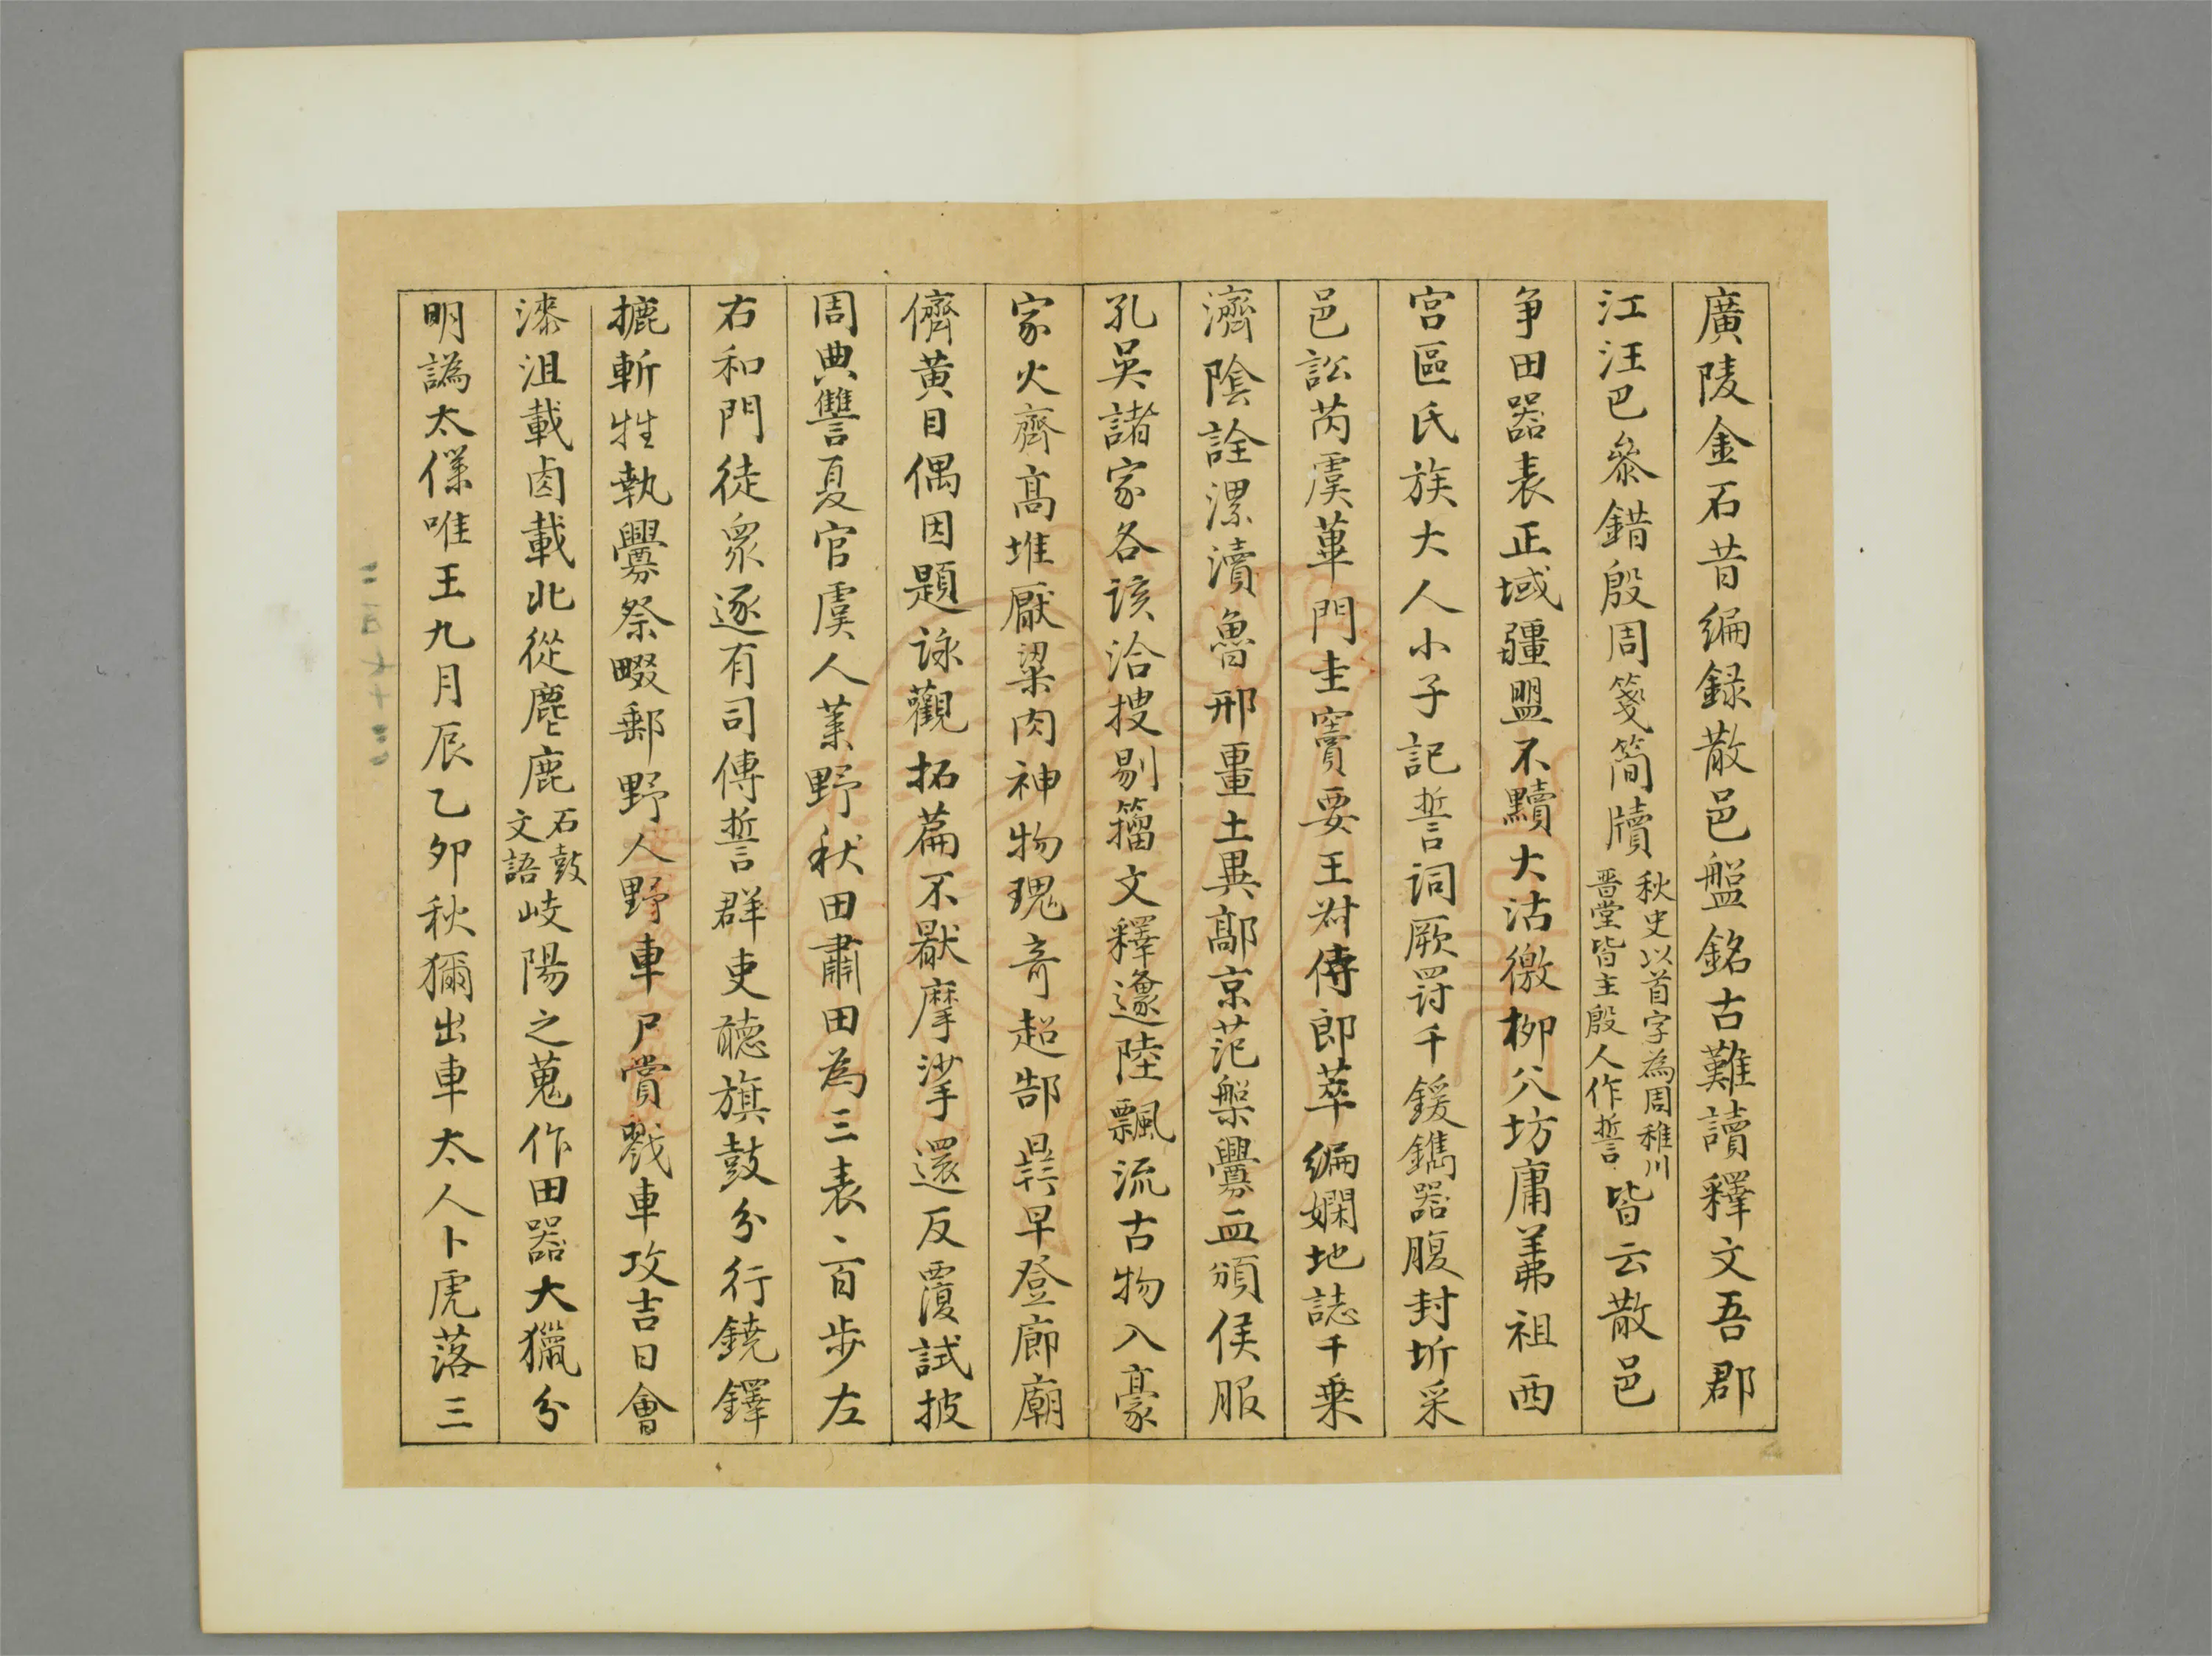 廣陵金石昔編録散邑盤銘古難讀釋文吾郡
江汪巴叅錯殷周箋簡牘秋史以首字為周稚川晋堂皆主殷人作誓皆云散邑
争田器表正域疆盟不黷大沽徼柳八坊庸茀祖西
宫區氏族大人小子記誓詞厥罸千鍰鐫器腹封圻采
邑訟芮虞蓽門圭竇要王尌侍郎萃編嫻地誌千乗
濟隂詮漯瀆魯邢畺土異鄗京范槃釁血頒侯服
孔吳諸家各該洽搜剔籀文釋邍陸飄流古物入豪
家火齊髙堆厭粱肉神物瑰竒超郜鼎早登廊廟
儕黄目偶因題詠觀拓篇不厭摩挲還反覆試披
周典讐夏官虞人萊野秋田肅田為三表二百步左
右和門徒衆逐有司傳誓群吏聴旗鼓分行鐃鐸
摝斬牲執釁祭畷郵野人野車尸賞戮車攻吉日會
漆沮載鹵載北從麀鹿石鼓文語岐陽之蒐作田器大獵分
明譌太僕唯王九月辰乙夘秋獮出車太人卜虎落三